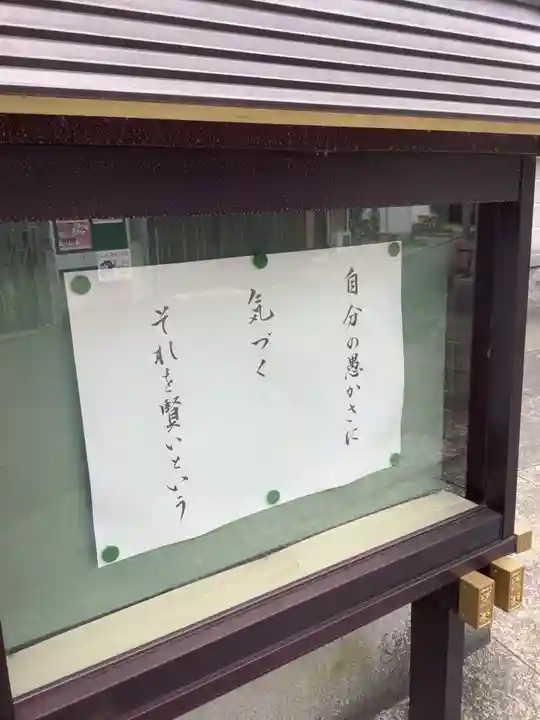 自分の愚かさに
気づく
それを賢いという